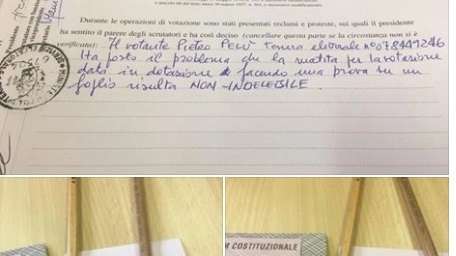 Durante le operazioni di votazione sono stati presentati reclami e proteste, sui quali il presidente
ha sentito il parere degli scrutatori e ha così deciso (cancellare questa parte se la circostanza non si è
verificata): Il votante Pietro Pelù Tessera elettorale n° 078449246
Ha posto il problema che la matita per la votazione
data in dotazione facendo una prova su un
foglio risulta NON-INDELEBILE.
M COSTITUZIONALE